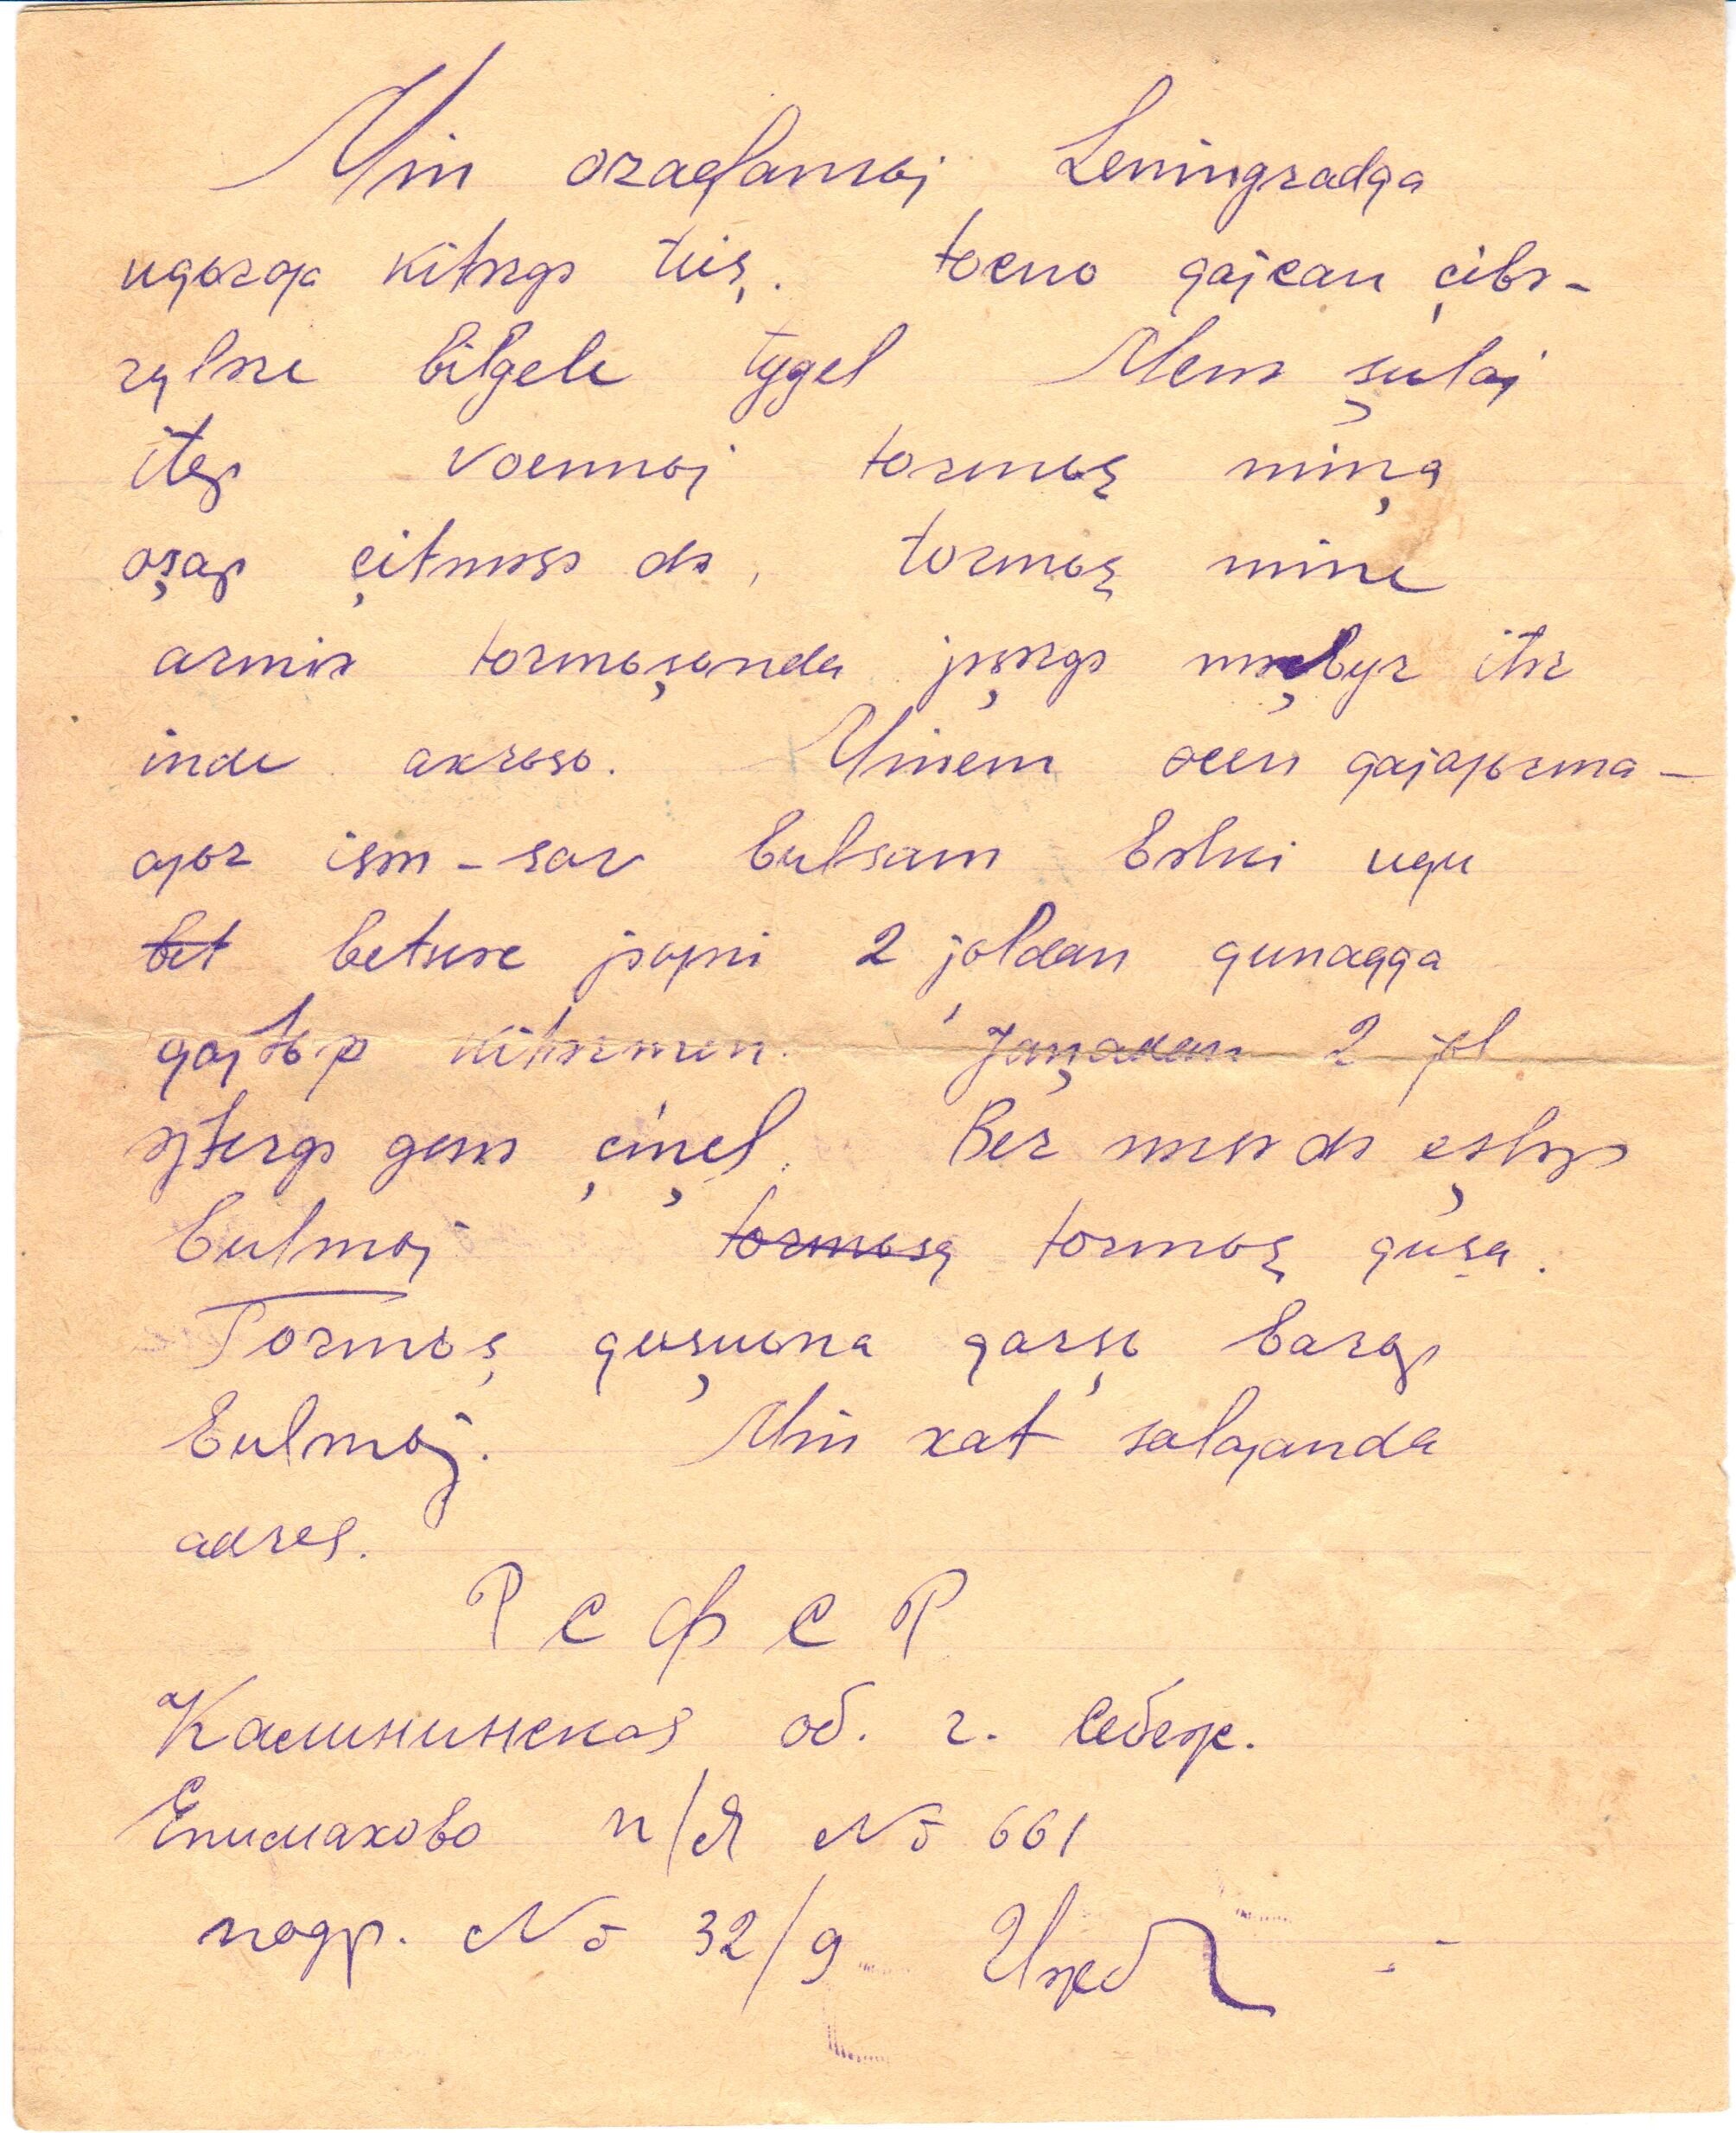 Min ozaqlamьj Leningradqa
uqьrƣa kitərgə tiş. toçno qajcan çibə-
rylәre bilgele tygel Menə şulaj
itep voennьj tormьş miņa
oşap çitməsə də, tormьş mine
armiə tormьşьnda jəşərgə məçbyr itər
inde axrьsь. Minem өcөn qajƣьrma-
ƣьz isən-sav bulsam bəlki uqu
bet betkəc jəƣni 2 jьldan qunaqqa
qajtьp kitərmen. Jaņadan 2 jьl
yterge genə çiņel. Ber nərsə də eşləp
bulmьj tormьşq tormьş quşa.
Tormьş quşuьna qarşь barьp
bulmьj. Min xat salƣanda
adres.
РСФСР
Калининская об. г. Себеж.
Епимахово п/я № 661
подр. № 32/9